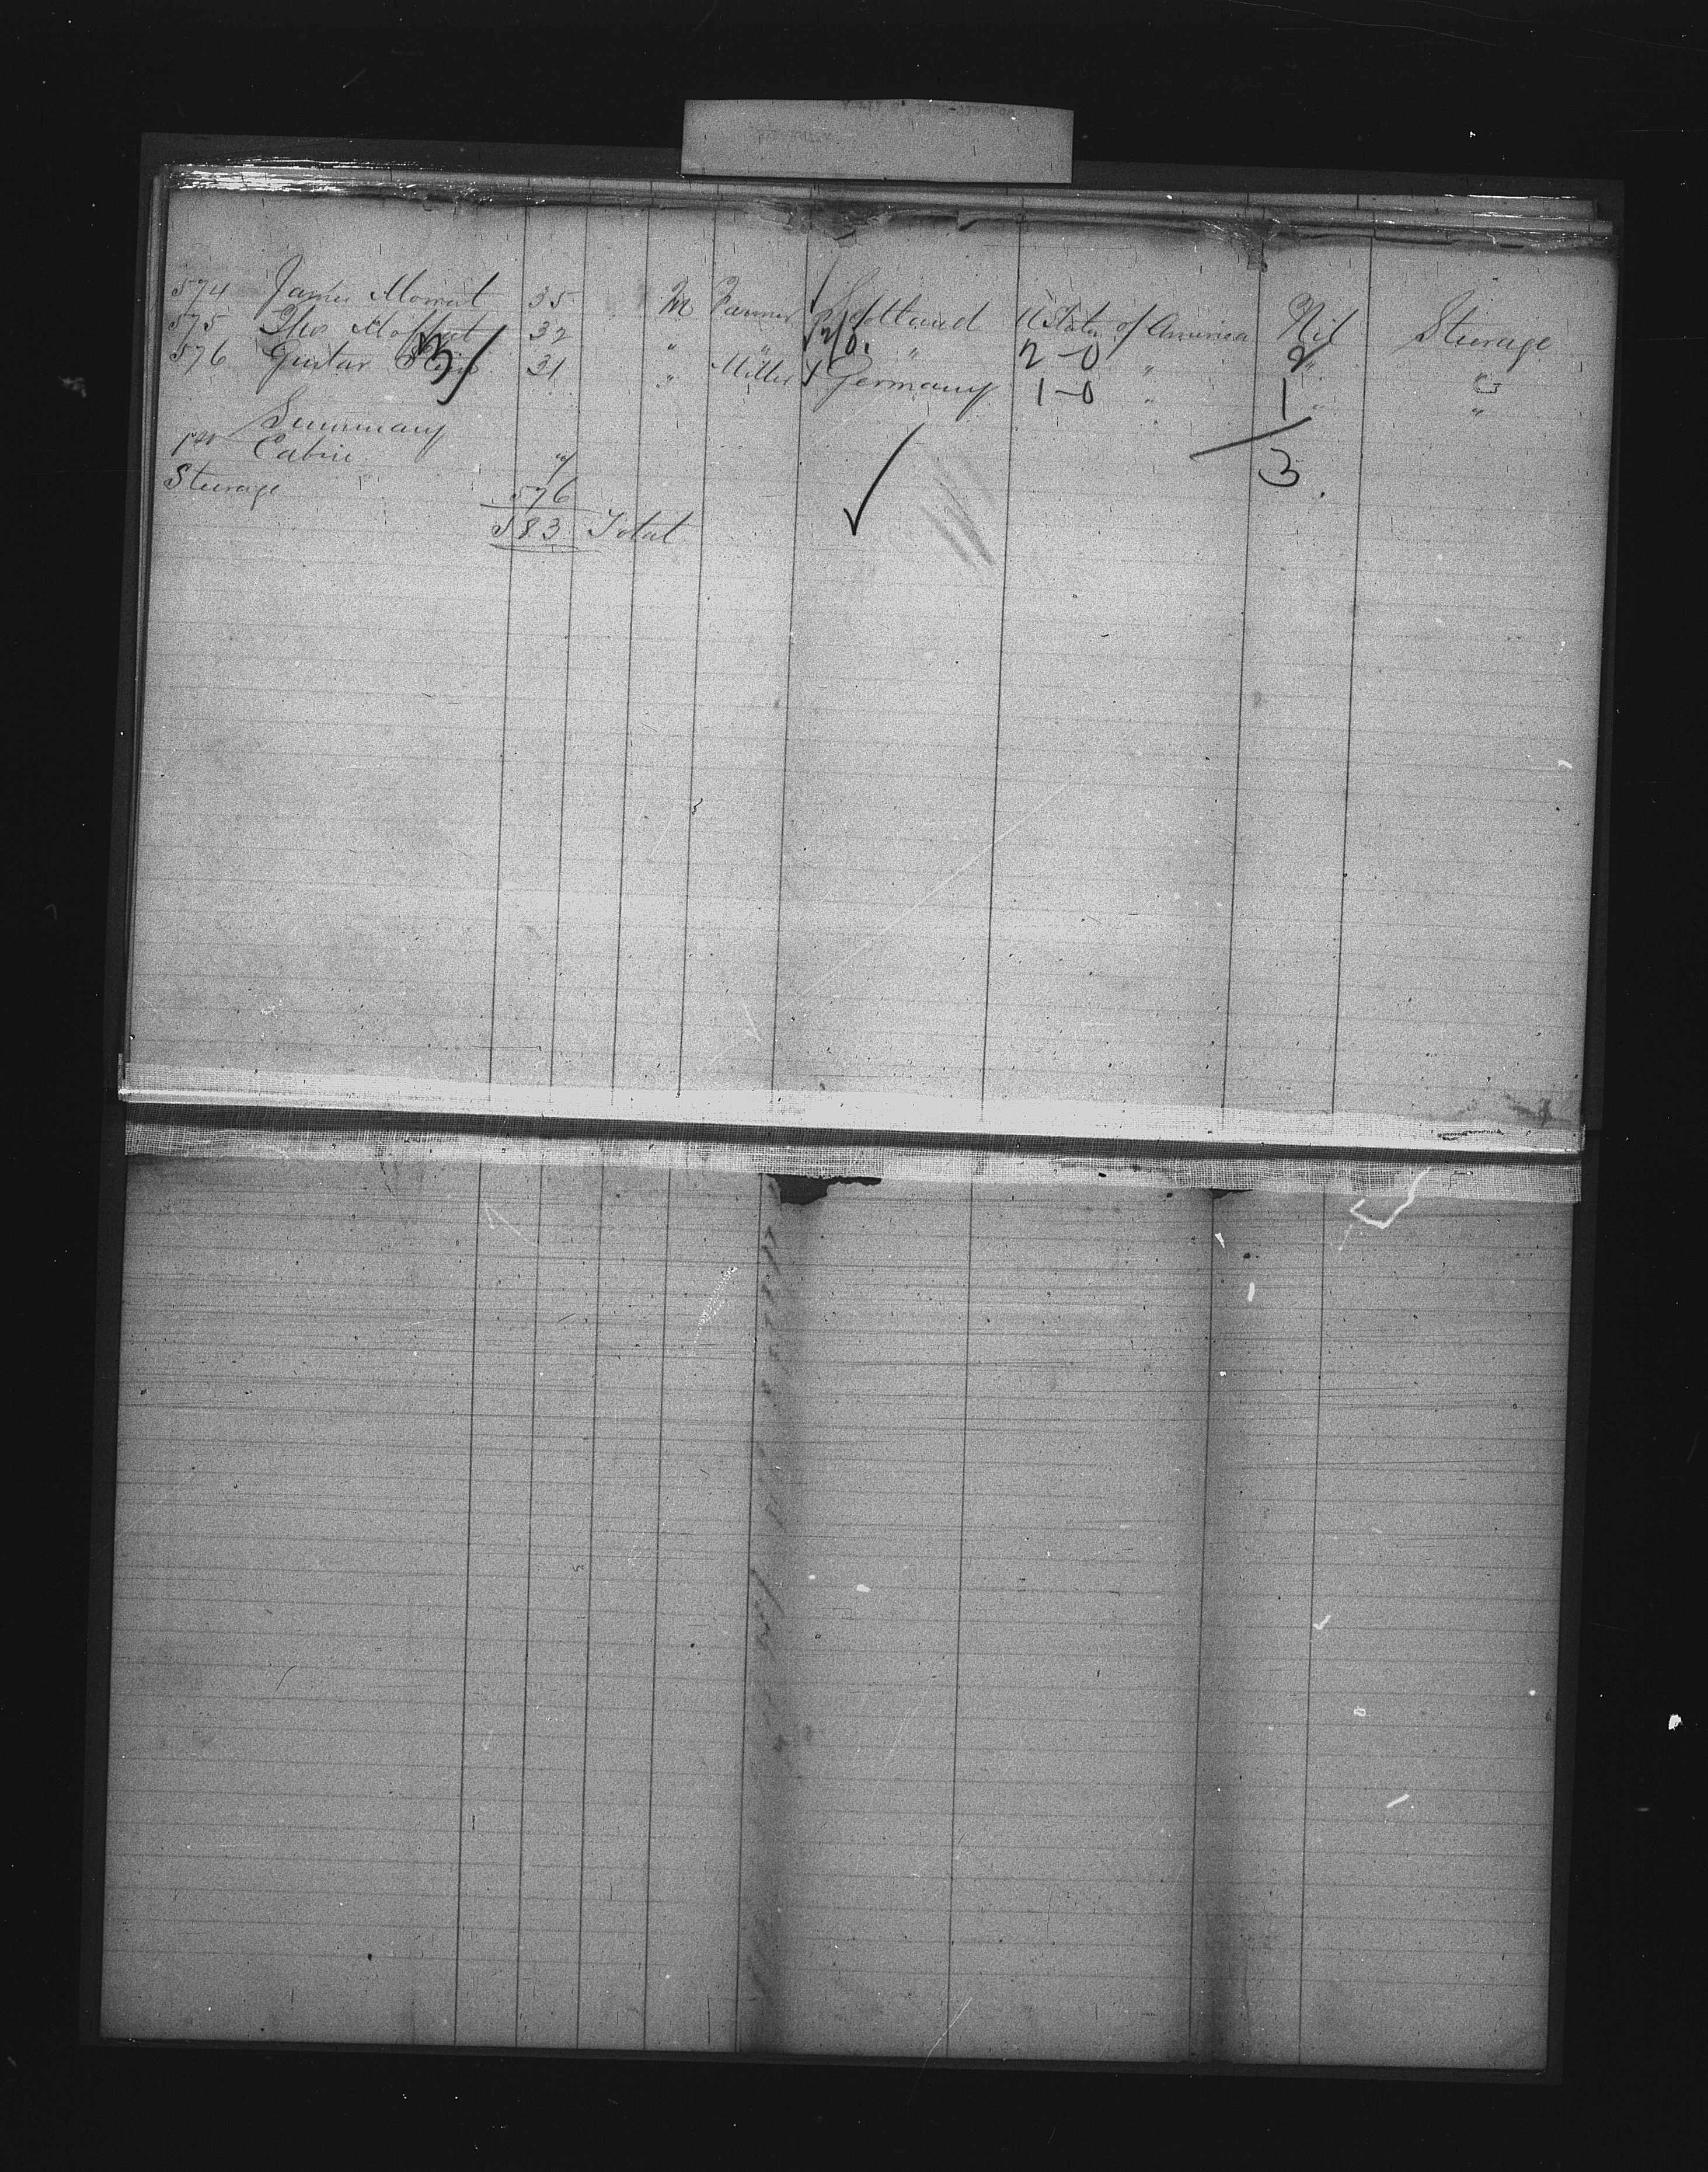 574 James Mowat 35 M Farmer Scotland U States of America Nil Steerage
575 Thos Moffat 32 " " 2/0. " 2-0 " 2 " "
576 Gustav 3/ 31 " Miller 1 Germany 1-0 " 1 " "
Summary 3
Cabin 7
Steerage 576
583 Total